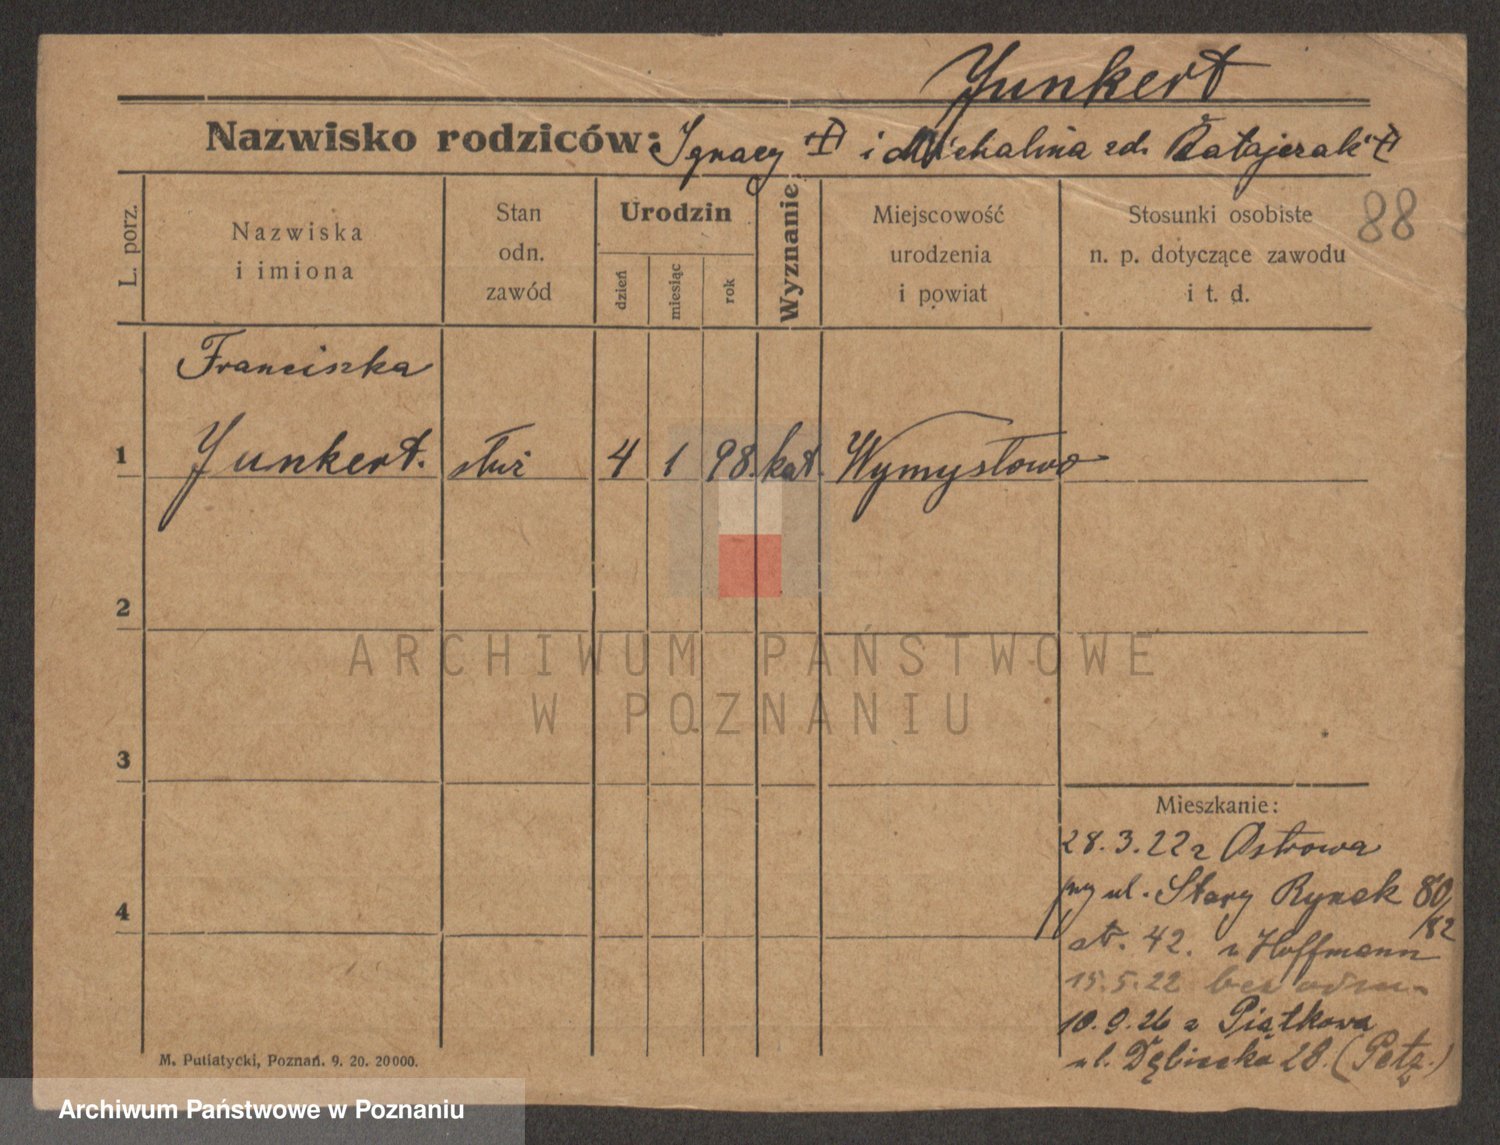 Junkert
Nazwisko rodziców: Ignacy i Michalina zd. Ratajczak
88
L. porz.
Nazwiska
i imiona
Stan
odn.
zawód
Urodzin
dzień
miesiąc
rok
Wyznanie
Miejscowość
urodzenia
i powiat
Stosunki osobiste
n. p. dotyczące zawodu
i t. d.
Franciszka
1 Junkert. służ 4 1 98. kat. Wymysłowo
2
ARCHIWUM PAŃSTWOWE
W POZNANIU
3
Mieszkanie:
28.3.22 z Ostrowa
przy ul. Stary Rynek 80/82
4
42. u Hoffmann
15.5.22 bez
10.9.26 z Piątkowa
ul. Dębiecka 28. (Petz.)
M. Putiatycki, Poznań. 9. 20. 20000.
Archiwum Państwowe w Poznaniu